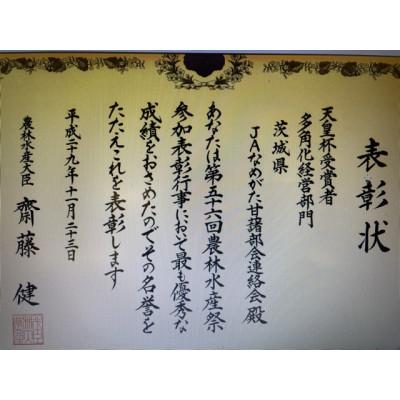 表彰状
天皇杯受賞者
多角化経営部門
茨城県
JAなめがた甘諸部会連絡会殿
あなたは第五十六回農林水産祭
参加表彰行事において最も優秀な
成績をおさめたのでその名誉を
たたえこれを表彰します
平成二十九年十一月二十三日
農林水産大臣 齋藤 健